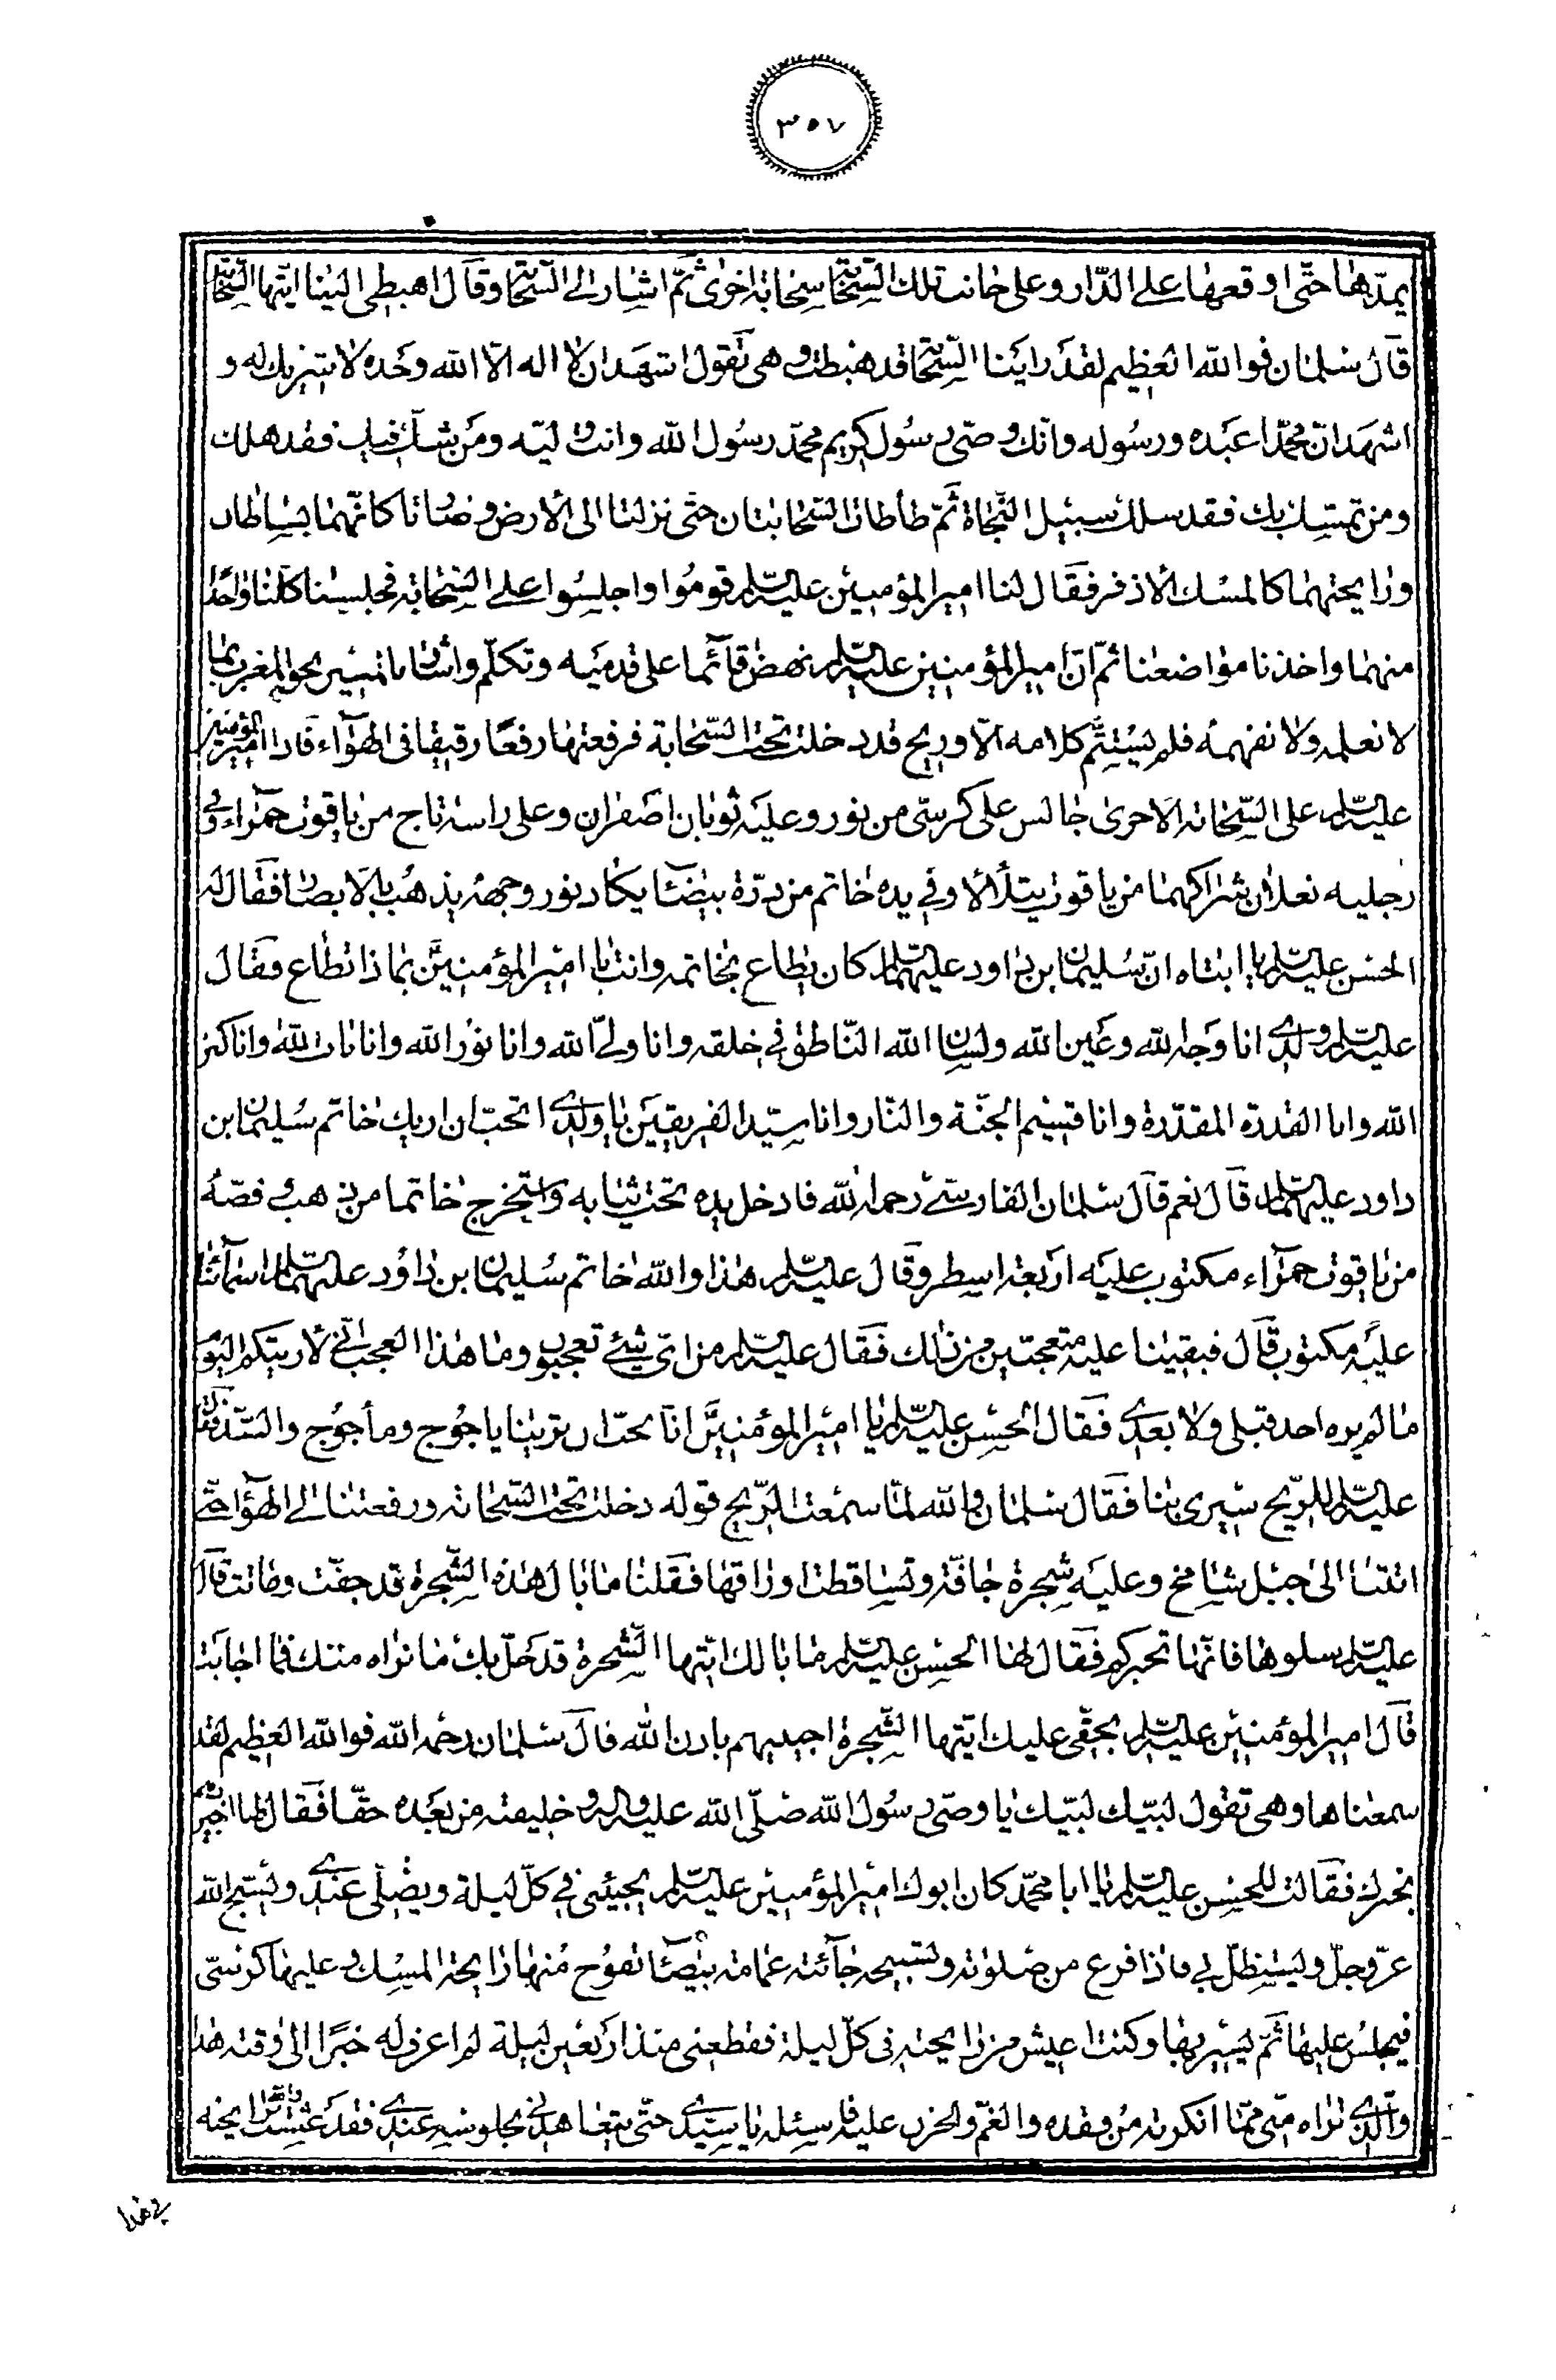 ٣٥٧
يمدّها حتّى اوقعها على الدّار وعلى جانب تلك السّحابة سحابة اخرى ثمّ اشار الى السّحابة وقال اهبطى الينا ايّتها السّحابة
قال سلمان فوالله العظيم لقد راينا السّحابة قد هبطت وهى تقول اشهد ان لا اله الّا الله وحده لا شريك له و
اشهد انّ محمّدا عبده ورسوله وانّك وصىّ رسول كريم محمّد رسول الله وانت وليّه ومن شكّ فيك فقد هلك
ومن تمسّك بك فقد سلك سبيل النّجاة ثمّ طأطأت السّحابتان حتّى نزلتا الى الأرض وصارتا كانّهما بساطان
ورايحتهما كالمسك الأذفر فقال لنا امير المؤمنين عليه السّلم قوموا واجلسوا على السّحابة فجلسنا كلّنا واحدا
منهما واخذنا مواضعنا ثمّ انّ امير المؤمنين عليه السّلم نهض قآئما على قدميه وتكلّم واشار بالمسير نحو المغرب بما
لا نعلمه ولا نفهمه فلم يستتمّ كلامه الّا وريح قد دخلت تحت السّحابة فرفعتها رفعا رقيقا فى الهوآء فاذا امير المؤمنين
عليه السّلم على السّحابة الاخرى جالس على كرسّى من نور وعليه ثوبان اصفران وعلى راسه تاج من ياقوت حمرآء وفى
رجليه نعلان شراكهما من ياقوت يتلألأ وفى يده خاتم من درّة بيضآء يكاد نور وجهه يذهب بالابصار فقال له
الحسن عليه السّلم يا ابتاه انّ سليمان بن داود عليهما السّلم كان يطاع بخاتمه وانت يا امير المؤمنين بماذا تطاع فقال
عليه السّلم يا ولدى انا وجه الله وعين الله ولسان الله النّاطق فى خلقه وانا ولىّ الله وانا نور الله وانا باب الله وانا كنز
الله وانا القدرة المقدّرة وانا قسيم الجنّة والنّار وانا سيّد الفريقين يا ولدى اتحبّ ان اريك خاتم سليمان بن
داود عليهما السّلم قال نعم قال سلمان الفارسى رحمه الله فادخل يده تحت ثيابه واستخرج خاتما من ذهب وفصّه
من ياقوت حمرآء مكتوب عليه اربعة اسطر وقال عليه السّلم هذا والله خاتم سليمان بن داود عليهما السّلم اسمآئنا
عليه مكتوب قال فبقينا عليه متعجّبين من ذلك فقال عليه السّلم من اىّ شىء تعجبون وما هذا العجب انّى لأرينّكم اليوم
ما لم يره احد قبلى ولا بعدى فقال الحسن عليه السّلم يا امير المؤمنين انّا نحبّ ان ترينا ياجوج ومأجوج والسّدّ فقال
عليه السّلم للرّيح سيرى بنا فقال سلمان فوالله لمّا سمعت الرّيح قوله دخلت تحت السّحابة ورفعتنا الى الهوآء حتّى
اتتنا الى جبل شامخ وعليه شجرة جافّة وتساقطت اوراقها فقلنا ما بال هذه الشّجرة قد جفّت وماتت قال
عليه السّلم سلوها فانّها تخبركم فقال لها الحسن عليه السّلم ما بالك ايّتها الشّجرة قد حلّ بك ما نراه منك فما اجابت
قال امير المؤمنين عليه السّلم بحقّى عليك ايّتها الشّجرة اجيبيهم باذن الله قال سلمان رحمه الله فوالله العظيم لقد
سمعناها وهى تقول لبّيك لبّيك يا وصىّ رسول الله صلّى الله عليه واله وخليفته من بعده حقّا فقال لها اخبريهم
بخبرك فقالت للحسن عليه السّلم يا ابا محمّد كان ابوك امير المؤمنين عليه السّلم يجيئنى فى كلّ ليلة ويصلّى عندى ويسبّح الله
عزّ وجلّ ويستظلّ بى فاذا فرغ من صلوته وتسبيحه جآئته غمامة بيضآء تفوح منها رايحة المسك وعليها كرسّى
فيجلس عليها ثمّ يسير بها وكنت اعيش من رايحته فى كلّ ليلة فقطعنى منذ اربعين ليلة لم اعرف له خبرًا الى وقته هذا
والّذى تراه منّى ممّا انكرته من فقده والغمّ والحزن عليه فاسئله يا سيّدى حتّى يتعاهدنى بجلوسه عندى فقد عشت برايحته